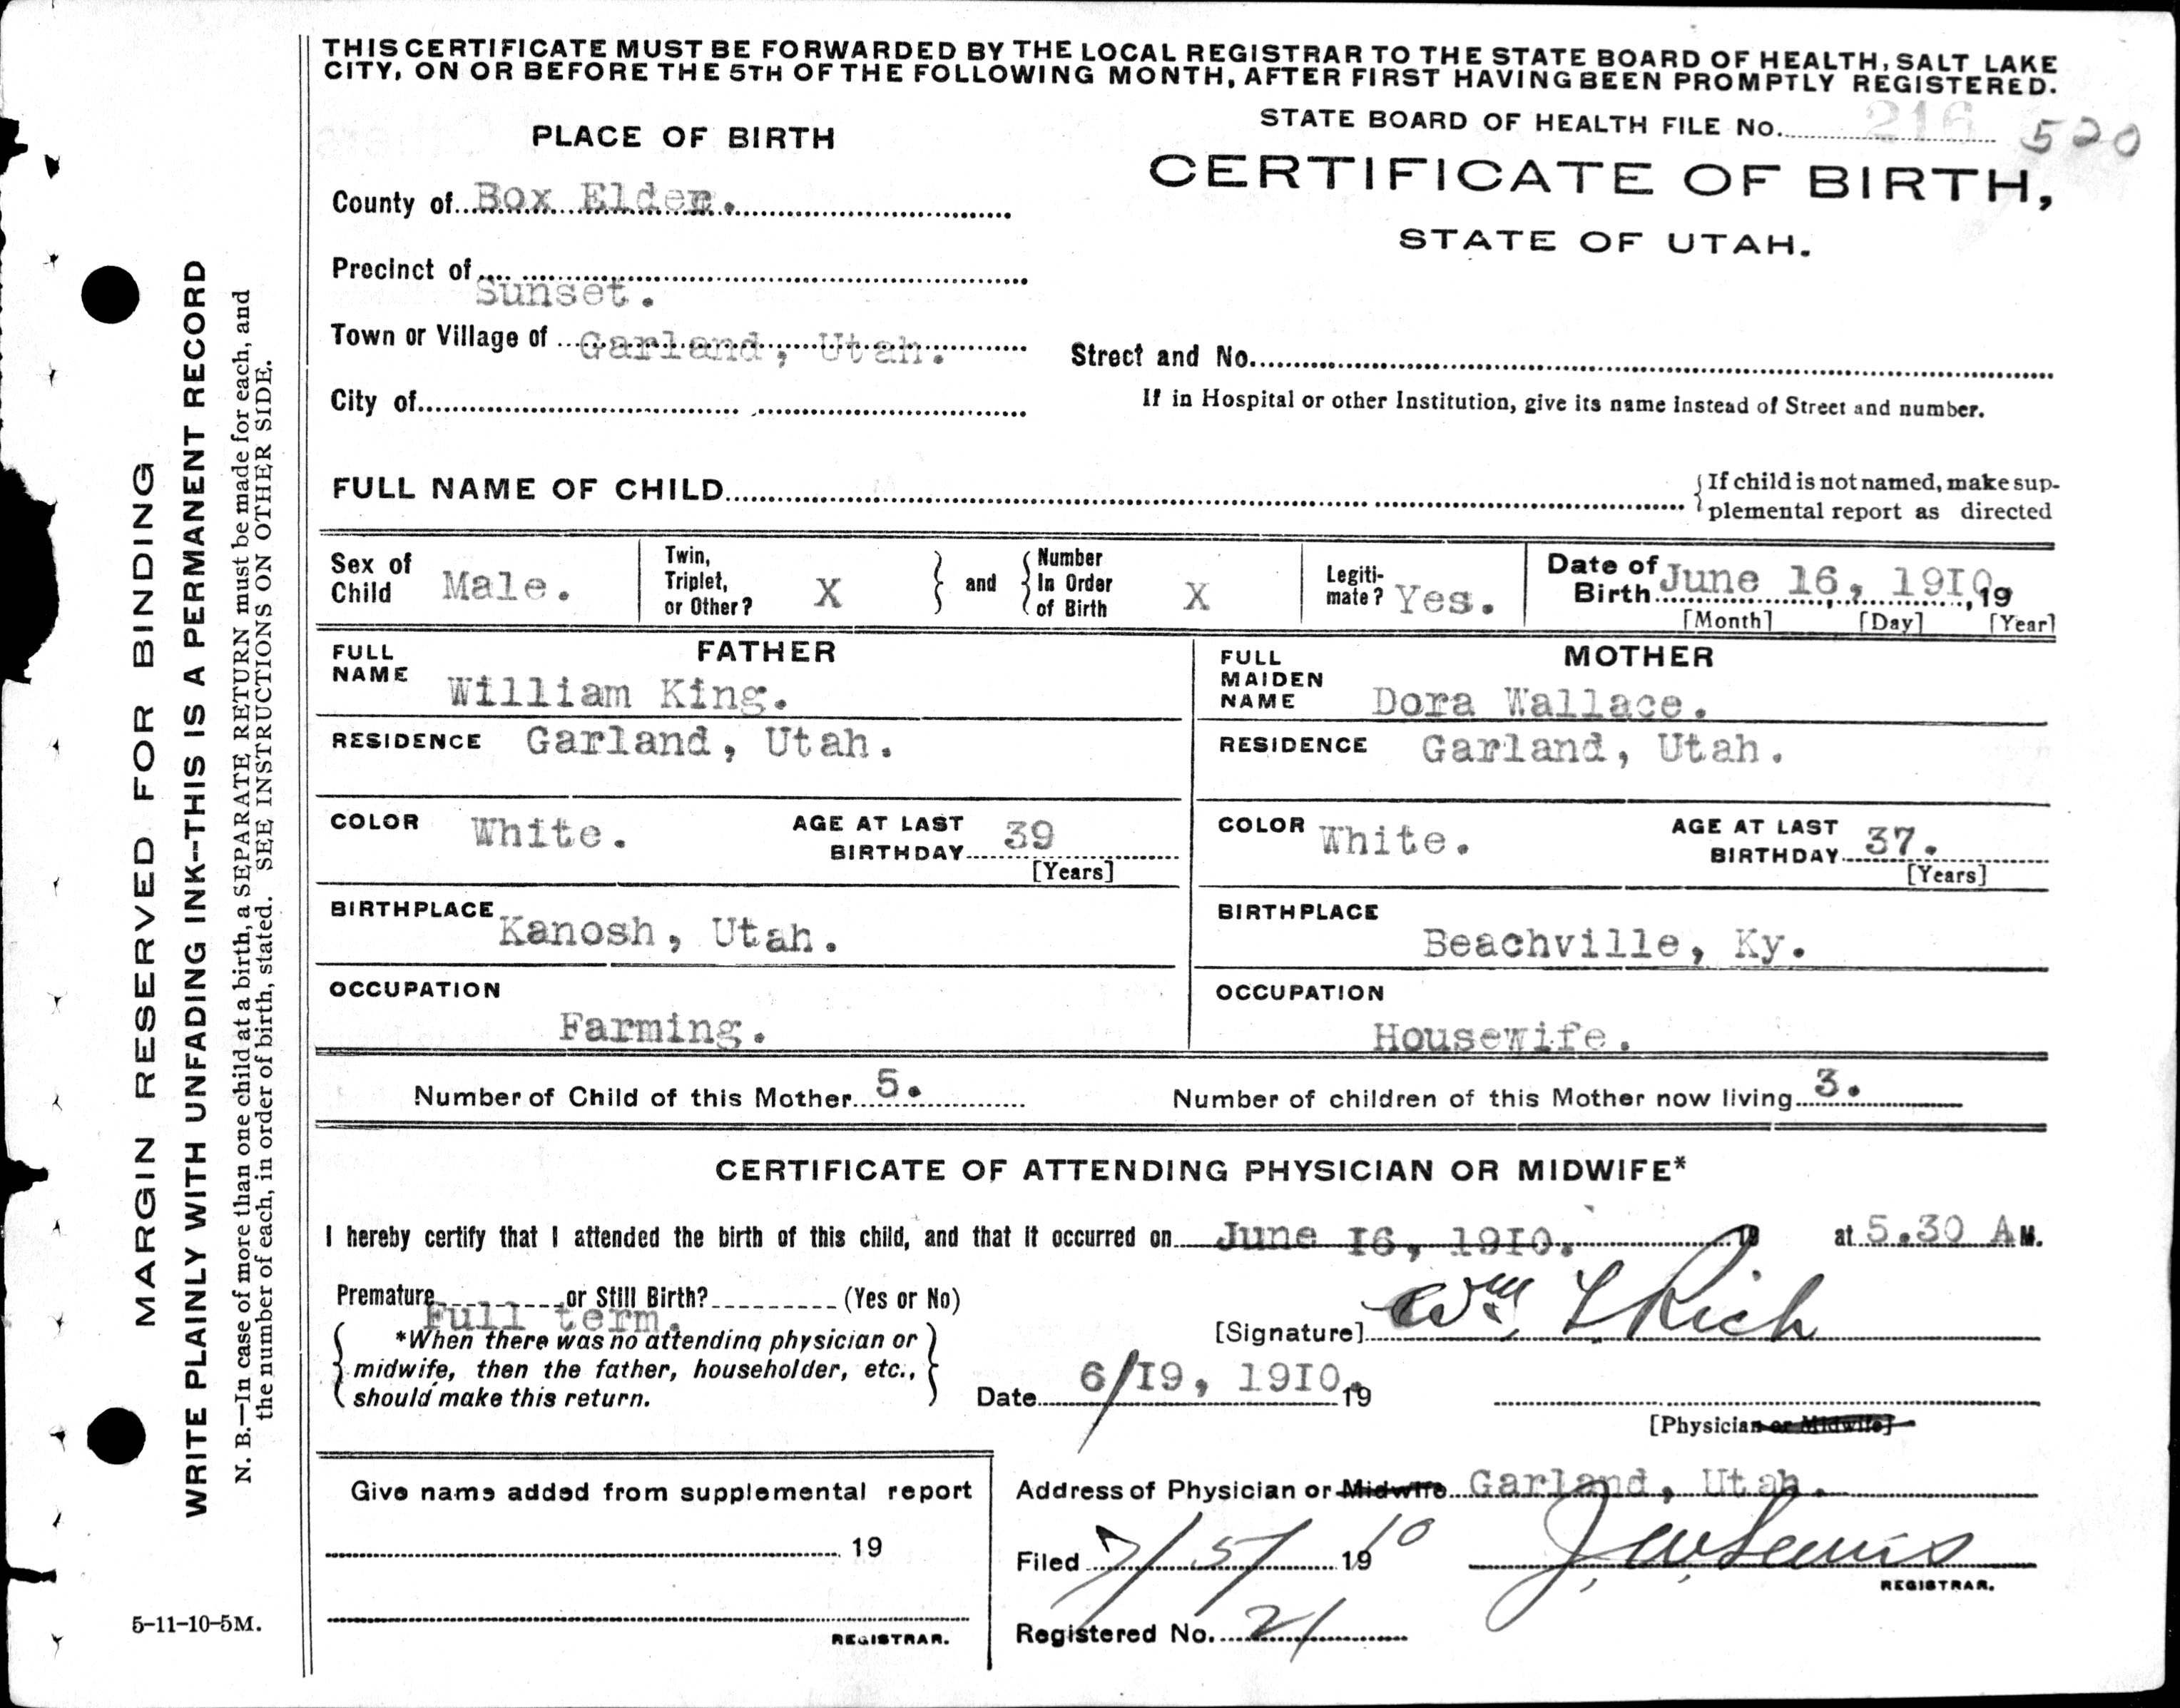 THIS CERTIFICATE MUST BE FORWARDED BY THE LOCAL REGISTRAR TO THE STATE BOARD OF HEALTH, SALT LAKE
CITY, ON OR BEFORE THE 5TH OF THE FOLLOWING MONTH, AFTER FIRST HAVING BEEN PROMPTLY REGISTERED.
STATE BOARD OF HEALTH FILE No. 216 520
PLACE OF BIRTH
CERTIFICATE OF BIRTH,
STATE OF UTAH.
County of Box Elder.
Precinct of Sunset.
Town or Village of Garland, Utah.
Street and No.
City of
If in Hospital or other Institution, give its name instead of Street and number.
FULL NAME OF CHILD
If child is not named, make sup-
plemental report as directed
Sex of Child Male.
Twin, Triplet, or Other? X
and
Number In Order of Birth X
Legiti-
mate? Yes.
Date of Birth June 16, 1910, 19
[Month] [Day] [Year]
FATHER
FULL NAME William King.
RESIDENCE Garland, Utah.
COLOR White.
AGE AT LAST BIRTHDAY 39
[Years]
BIRTHPLACE Kanosh, Utah.
OCCUPATION Farming.
MOTHER
FULL MAIDEN NAME Dora Wallace.
RESIDENCE Garland, Utah.
COLOR White.
AGE AT LAST BIRTHDAY 37.
[Years]
BIRTHPLACE Beachville, Ky.
OCCUPATION Housewife.
Number of Child of this Mother 5.
Number of children of this Mother now living 3.
CERTIFICATE OF ATTENDING PHYSICIAN OR MIDWIFE*
I hereby certify that I attended the birth of this child, and that it occurred on June 16, 1910. 19 at 5.30 A M.
Premature or Still Birth? (Yes or No)
Full term.
*When there was no attending physician or
midwife, then the father, householder, etc.,
should make this return.
[Signature] Wm L Rich
Date 6/19, 1910. 19
[Physician or Midwife]
Address of Physician or Midwife Garland, Utah.
Give name added from supplemental report
19
REGISTRAR.
Filed 7/5/ 1910
J. W. Lewis
REGISTRAR.
Registered No. 21
5-11-10-5M.
MARGIN RESERVED FOR BINDING
WRITE PLAINLY WITH UNFADING INK--THIS IS A PERMANENT RECORD
N. B.—In case of more than one child at a birth, a SEPARATE RETURN must be made for each, and
the number of each, in order of birth, stated. SEE INSTRUCTIONS ON OTHER SIDE.